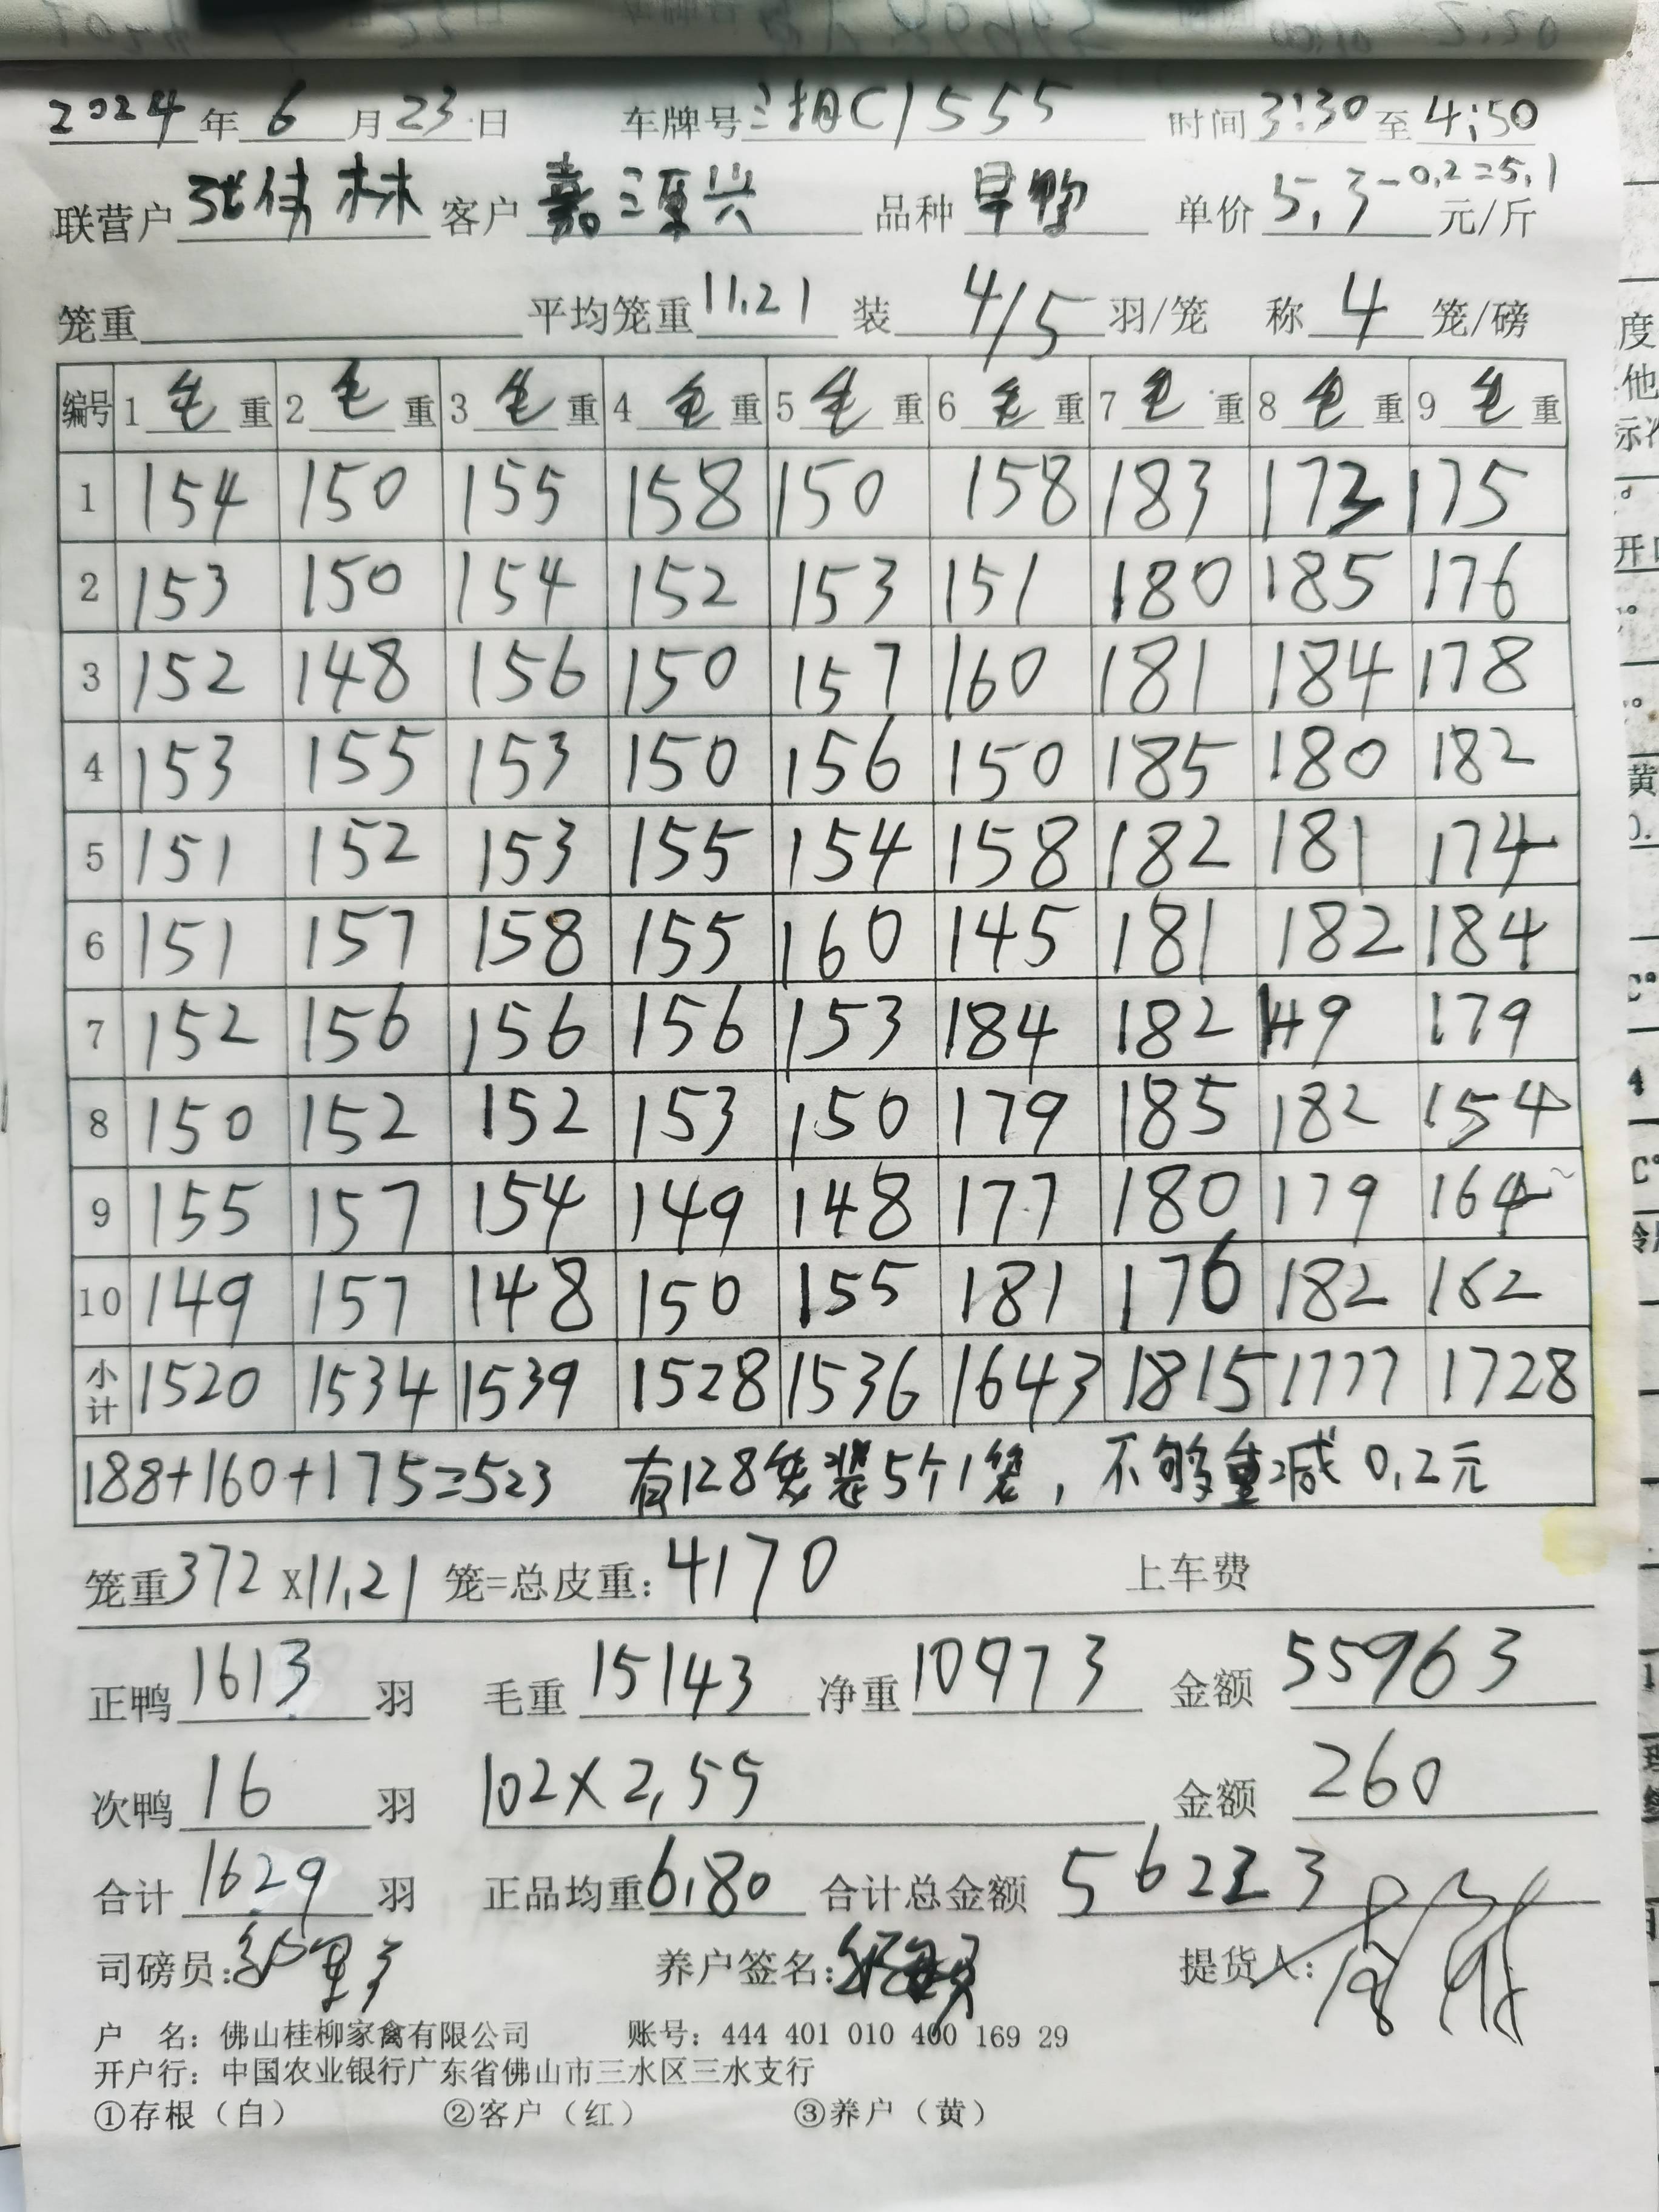 2024年 6 月 23 日 车牌号 湘C1555 时间 3:30 至 4:50
联营户 张伟林 客户 嘉源兴 品种 旱鸭 单价 5.3-0.2=5.1 元/斤
笼重 平均笼重 11.21 装 4/5 羽/笼 称 4 笼/磅
编号 1 毛 重 2 毛 重 3 毛 重 4 毛 重 5 毛 重 6 毛 重 7 毛 重 8 毛 重 9 毛 重
1 154 150 155 158 150 158 183 173 175
2 153 150 154 152 153 151 180 185 176
3 152 148 156 150 157 160 181 184 178
4 153 155 153 150 156 150 185 180 182
5 151 152 153 155 154 158 182 181 174
6 151 157 158 155 160 145 181 182 184
7 152 156 156 156 153 184 182 149 179
8 150 152 152 153 150 179 185 182 154
9 155 157 154 149 148 177 180 179 164
10 149 157 148 150 155 181 176 182 162
小计 1520 1534 1539 1528 1536 1643 1815 1777 1728
188+160+175=523 有128笼装5个1笼, 不够重减0.2元
笼重 372 X 11.21 笼=总皮重: 4170 上车费
正鸭 1613 羽 毛重 15143 净重 10973 金额 55963
次鸭 16 羽 102X2.55 金额 260
合计 1629 羽 正品均重 6.80 合计总金额 56223
司磅员: 养户签名: 提货人:
户 名: 佛山桂柳家禽有限公司 账号: 444 401 010 400 169 29
开户行: 中国农业银行广东省佛山市三水区三水支行
①存根（白） ②客户（红） ③养户（黄）